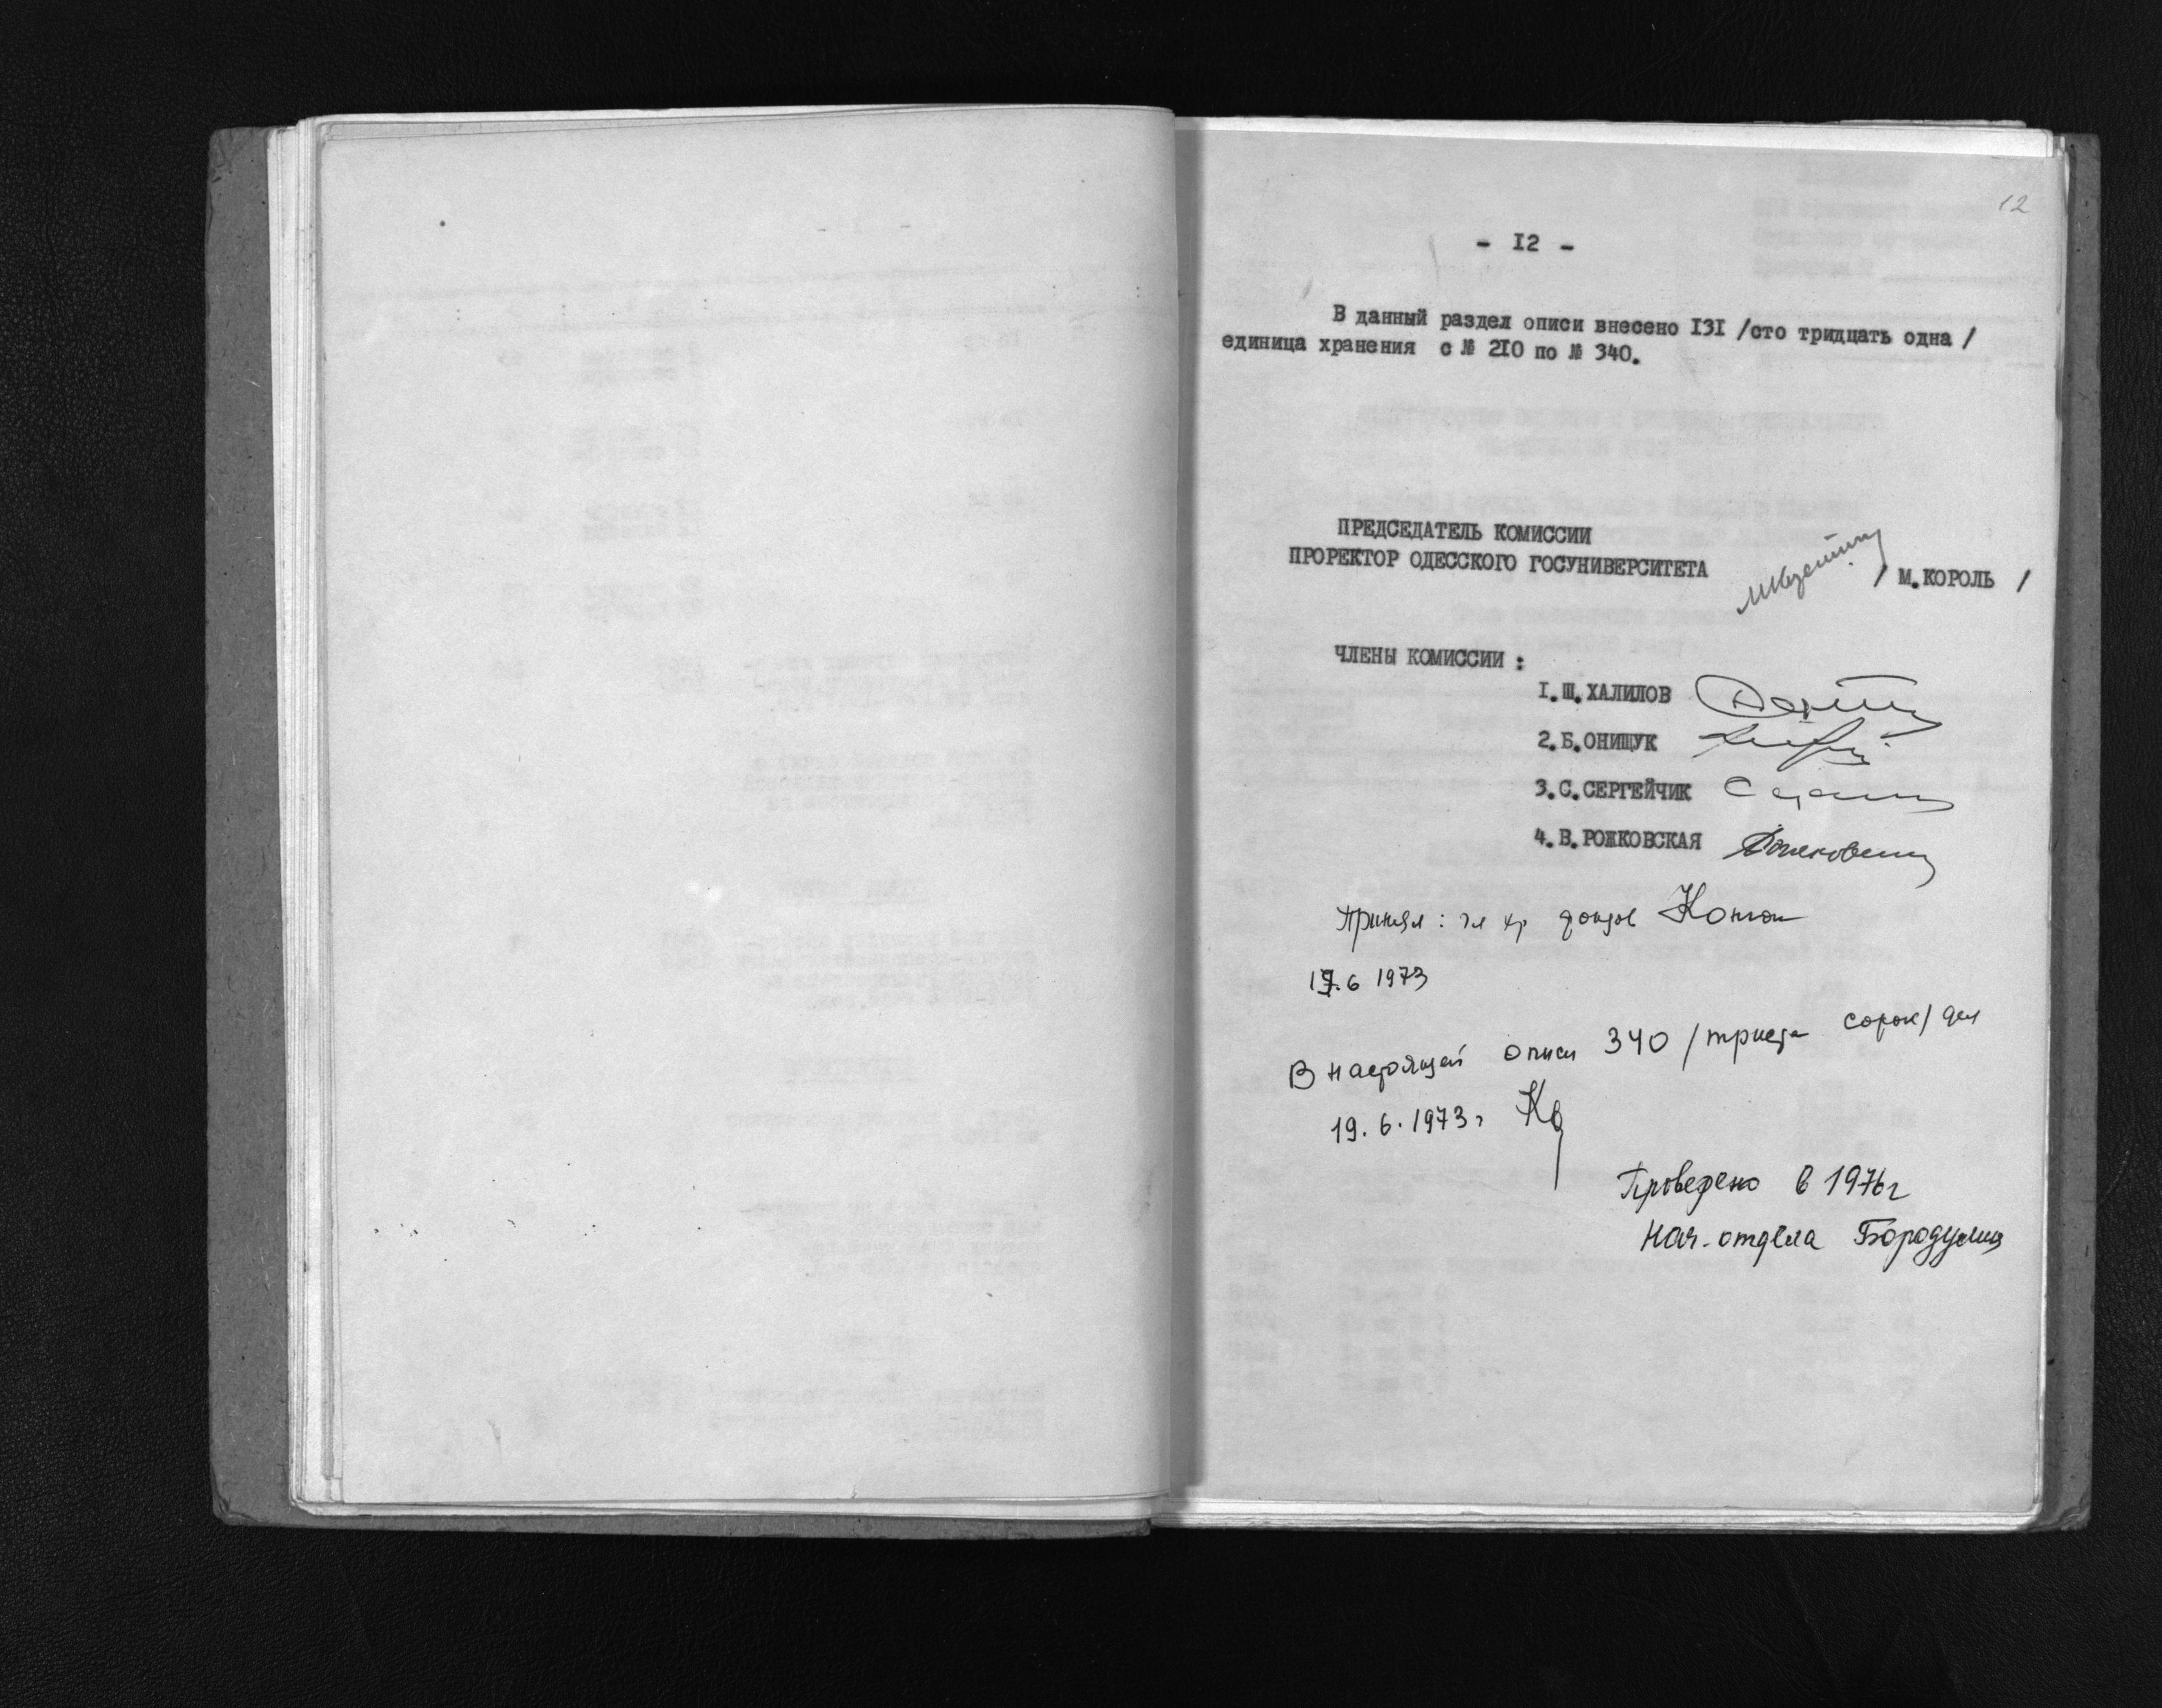 12
- I2 -
В данный раздел описи внесено I3I /сто тридцать одна /
единица хранения с № 2I0 по № 340.
ПРЕДСЕДАТЕЛЬ КОМИССИИ
ПРОРЕКТОР ОДЕССКОГО ГОСУНИВЕРСИТЕТА / М.КОРОЛЬ /
ЧЛЕНЫ КОМИССИИ :
I.Ш.ХАЛИЛОВ
2.Б.ОНИЩУК
3.С.СЕРГЕЙЧИК
4.В.РОЖКОВСКАЯ
Принял: гл хр фондов
19.6 1973
В настоящей описи 340 /триста сорок/ дел
19.6.1973г
Проведено в 1976г
Нач. отдела